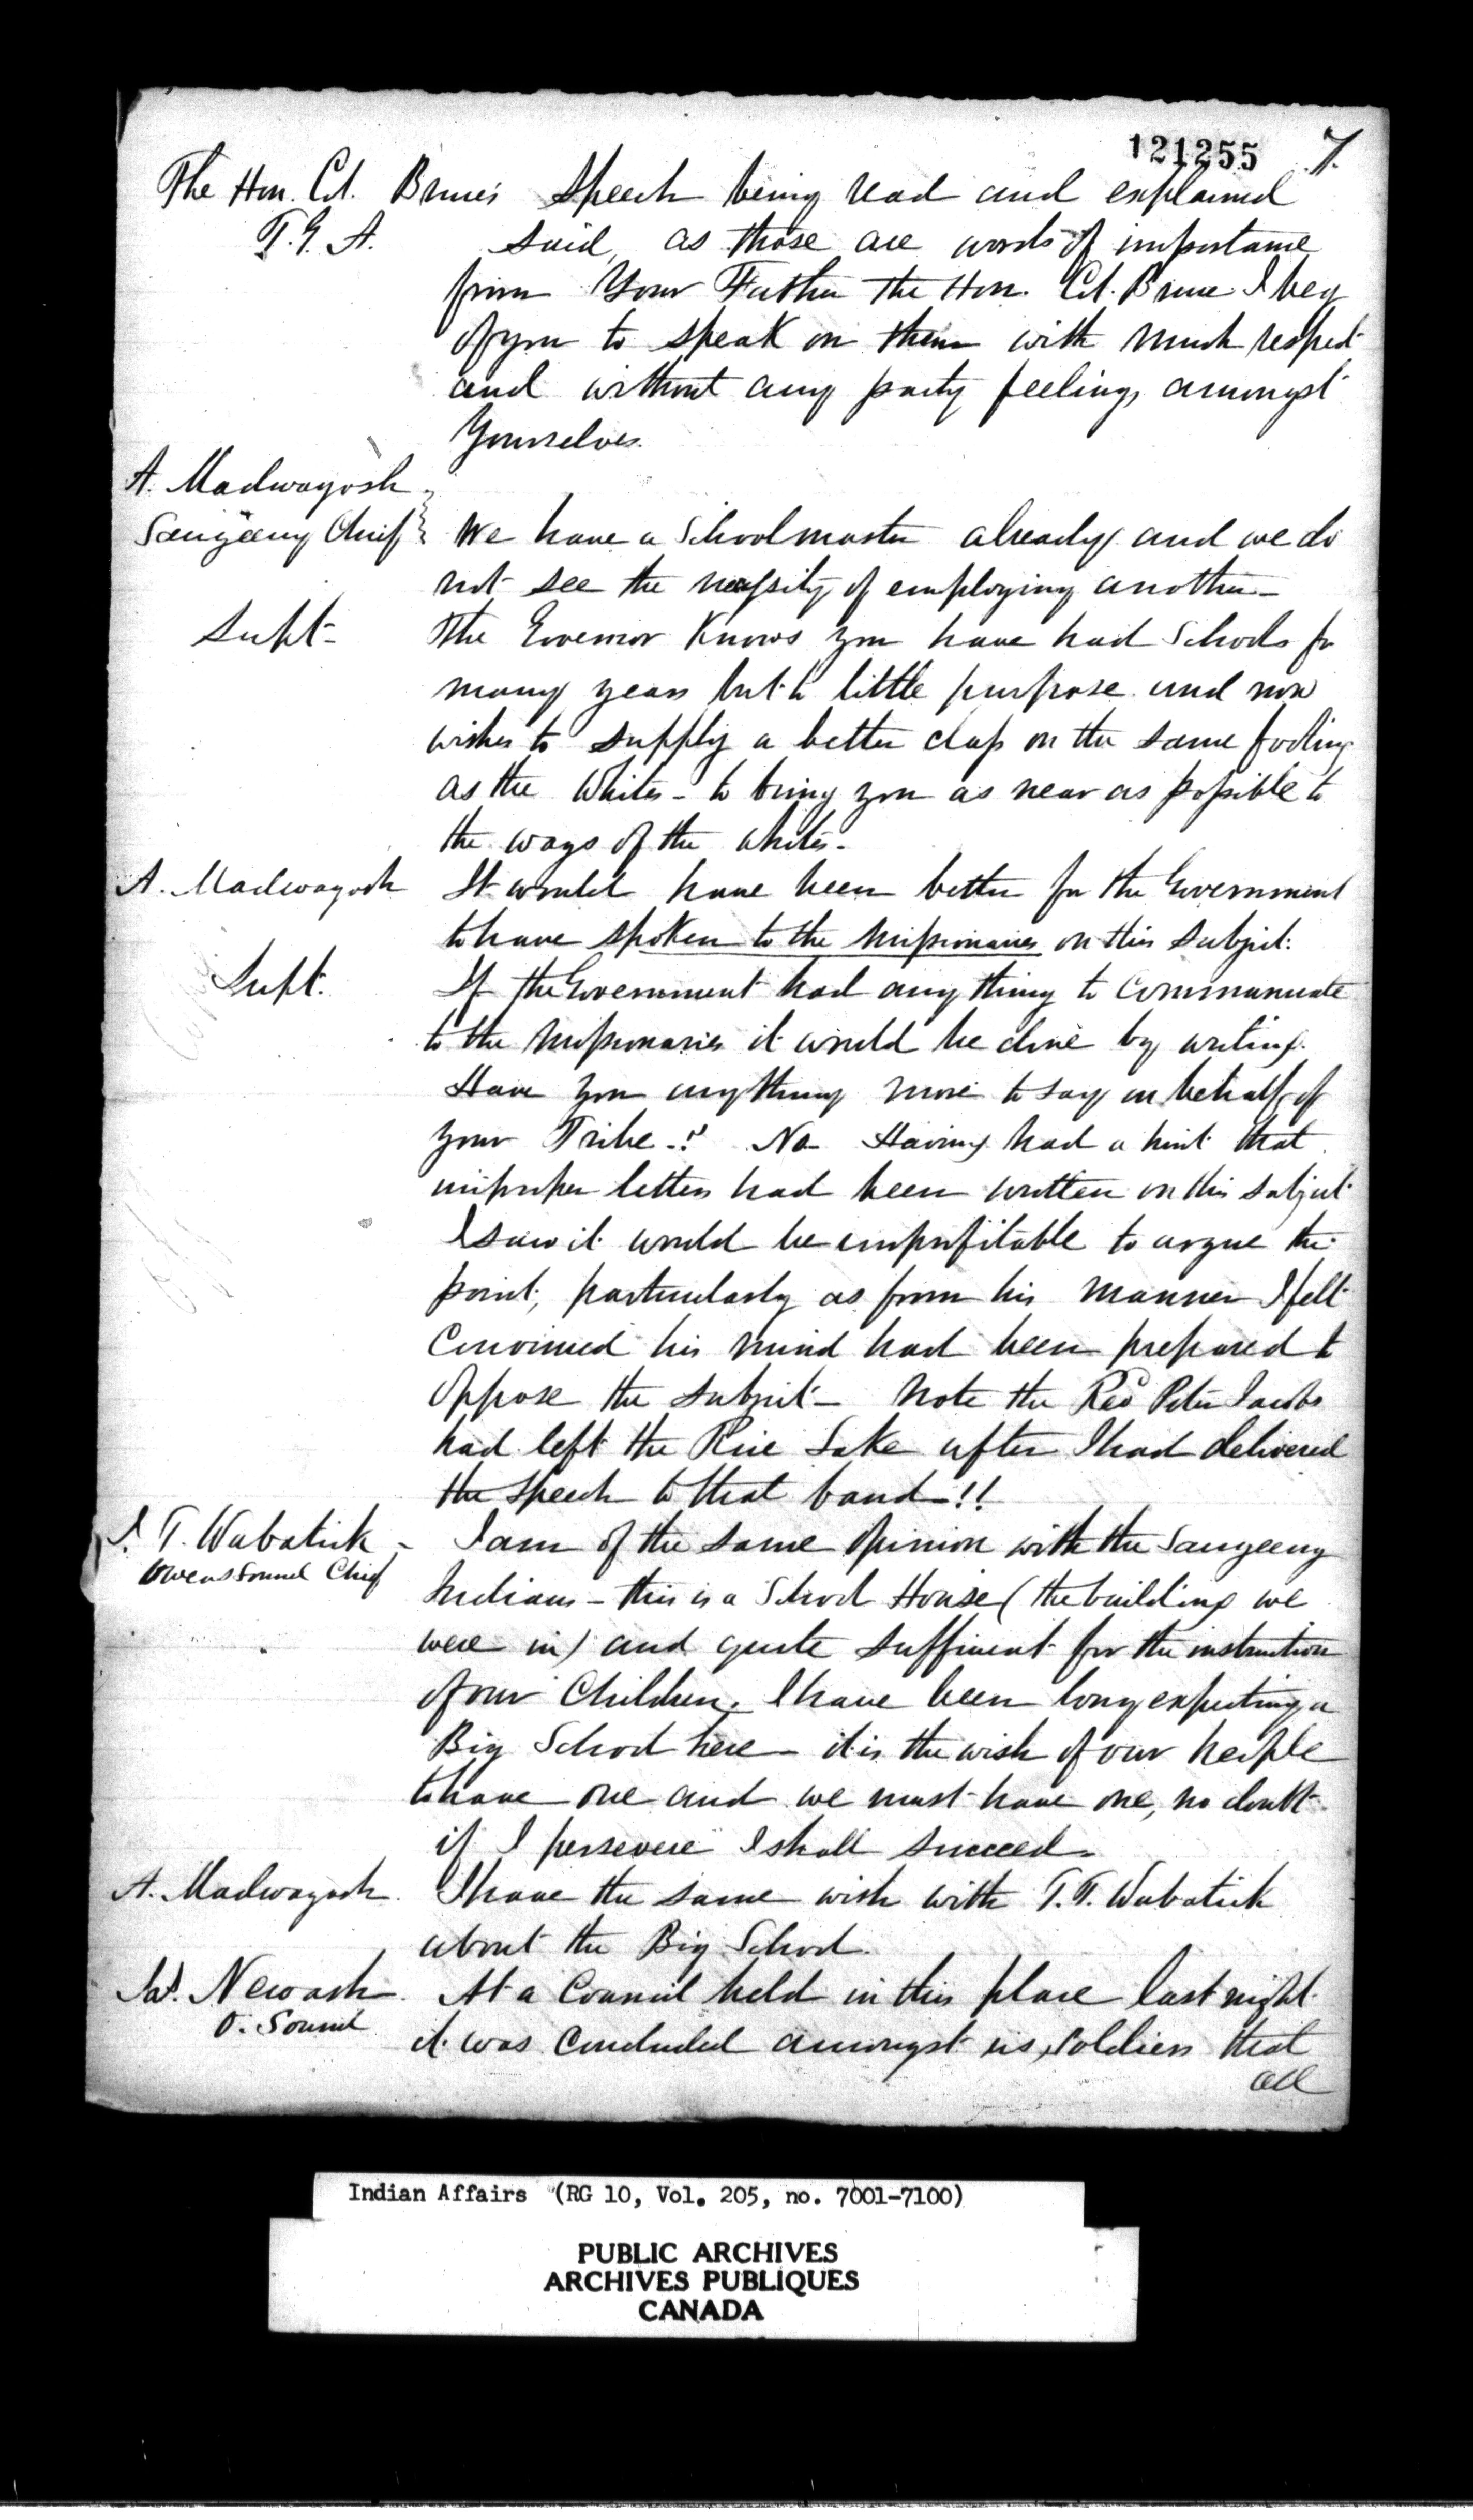 121255 7.
The Hon. Col. Bruce's Speech being read and explained
T. G. A. said, as those are words of importance
from Your Father the Hon. Col. Bruce I beg
of you to speak on them with much respect
and without any party feelings amongst
Yourselves.
A. Madwayosh
Saugeeng Chief } We have a Schoolmaster already and we do
not see the necessity of employing another –
Supt – The Governor Knows you have had Schools for
many years but to little purpose and now
wishes to supply a better class on the same footing
as the Whites – to bring you as near as possible to
the ways of the whites –
A. Madwayosh It would have been better for the Government
to have spoken to the missionaries on this subject.
Supt. If the Government had any thing to communicate
to the missionaries it would be done by writing.
Have you anything more to say on behalf of
your Tribe –? No – Having had a hint that
improper letters had been written on this subject
I saw it would be unprofitable to argue the
point, particularly as from his manner I felt
Convinced his mind had been prepared to
oppose the subject – Note the Revd Peter Jacobs
had left the Rice Lake after I had delivered
the speech to that band –!!
J. T. Wabatick – I am of the same opinion with the Saugeeng
Owens Sound Chief Indians – this is a School House (the building we
were in) and quite sufficient for the instruction
of our Children. I have been long expecting a
Big School here – it is the wish of our people
to have one and we must have one, no doubt
if I persevere I shall succeed –
A. Madwayosh. I have the same wish with T. T. Wabatick
about the Big School.
Newash. At a Council held in this place last night
O. Sound it was concluded amongst us, soldiers that
all
Indian Affairs (RG 10, Vol. 205, no. 7001-7100)
PUBLIC ARCHIVES
ARCHIVES PUBLIQUES
CANADA